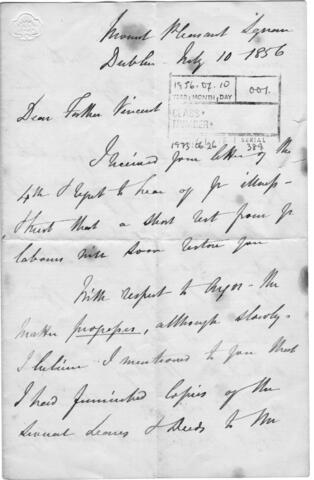 Mount Pleasant Square
Dublin July 10 1856
1856.07.10
YEAR MONTH DAY
001.
CLASS
NUMBER
1973/06/26
SERIAL
389
Dear Father Vincent
I received your letter of the
4th & regret to hear of yr illness -
& trust that a short rest from yr
labours will soon restore you
With respect to Ayos - the
matter progresses, although slowly -
I believe I mentioned to you that
I had furnished Copies of the
several Leases & Deeds to Mr